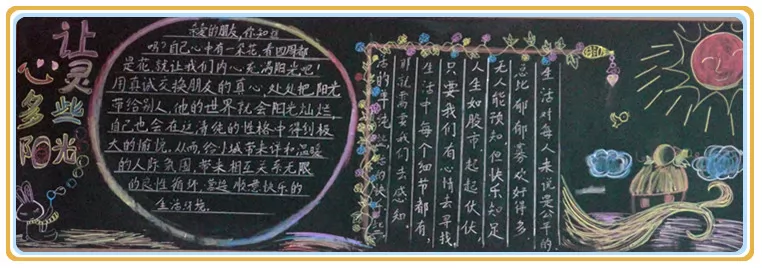 让
心灵
多些
阳光
亲爱的朋友,你知道
吗?自己心中有一朵花,看四周都
是花,就让我们内心充满阳光吧!
用真诚交换朋友的真心,处处把阳光
带给别人,他的世界就会阳光灿烂,
自己也会在这清纯的性格中得到极
大的愉悦,从而给小城带来详和温暖
的人际氛围,带来相互关系无限
的良性循环,营造 惬意快乐的
生活环境。
生活对每人来说是公平的,
总比郁郁寡欢好得多。
无人能预知,但快乐知足
人生如股市,起起伏伏,
只要我们有心情去寻找,
生活中,每个细节都有,
那就需要我们去感知。
活的单纯 活的快乐